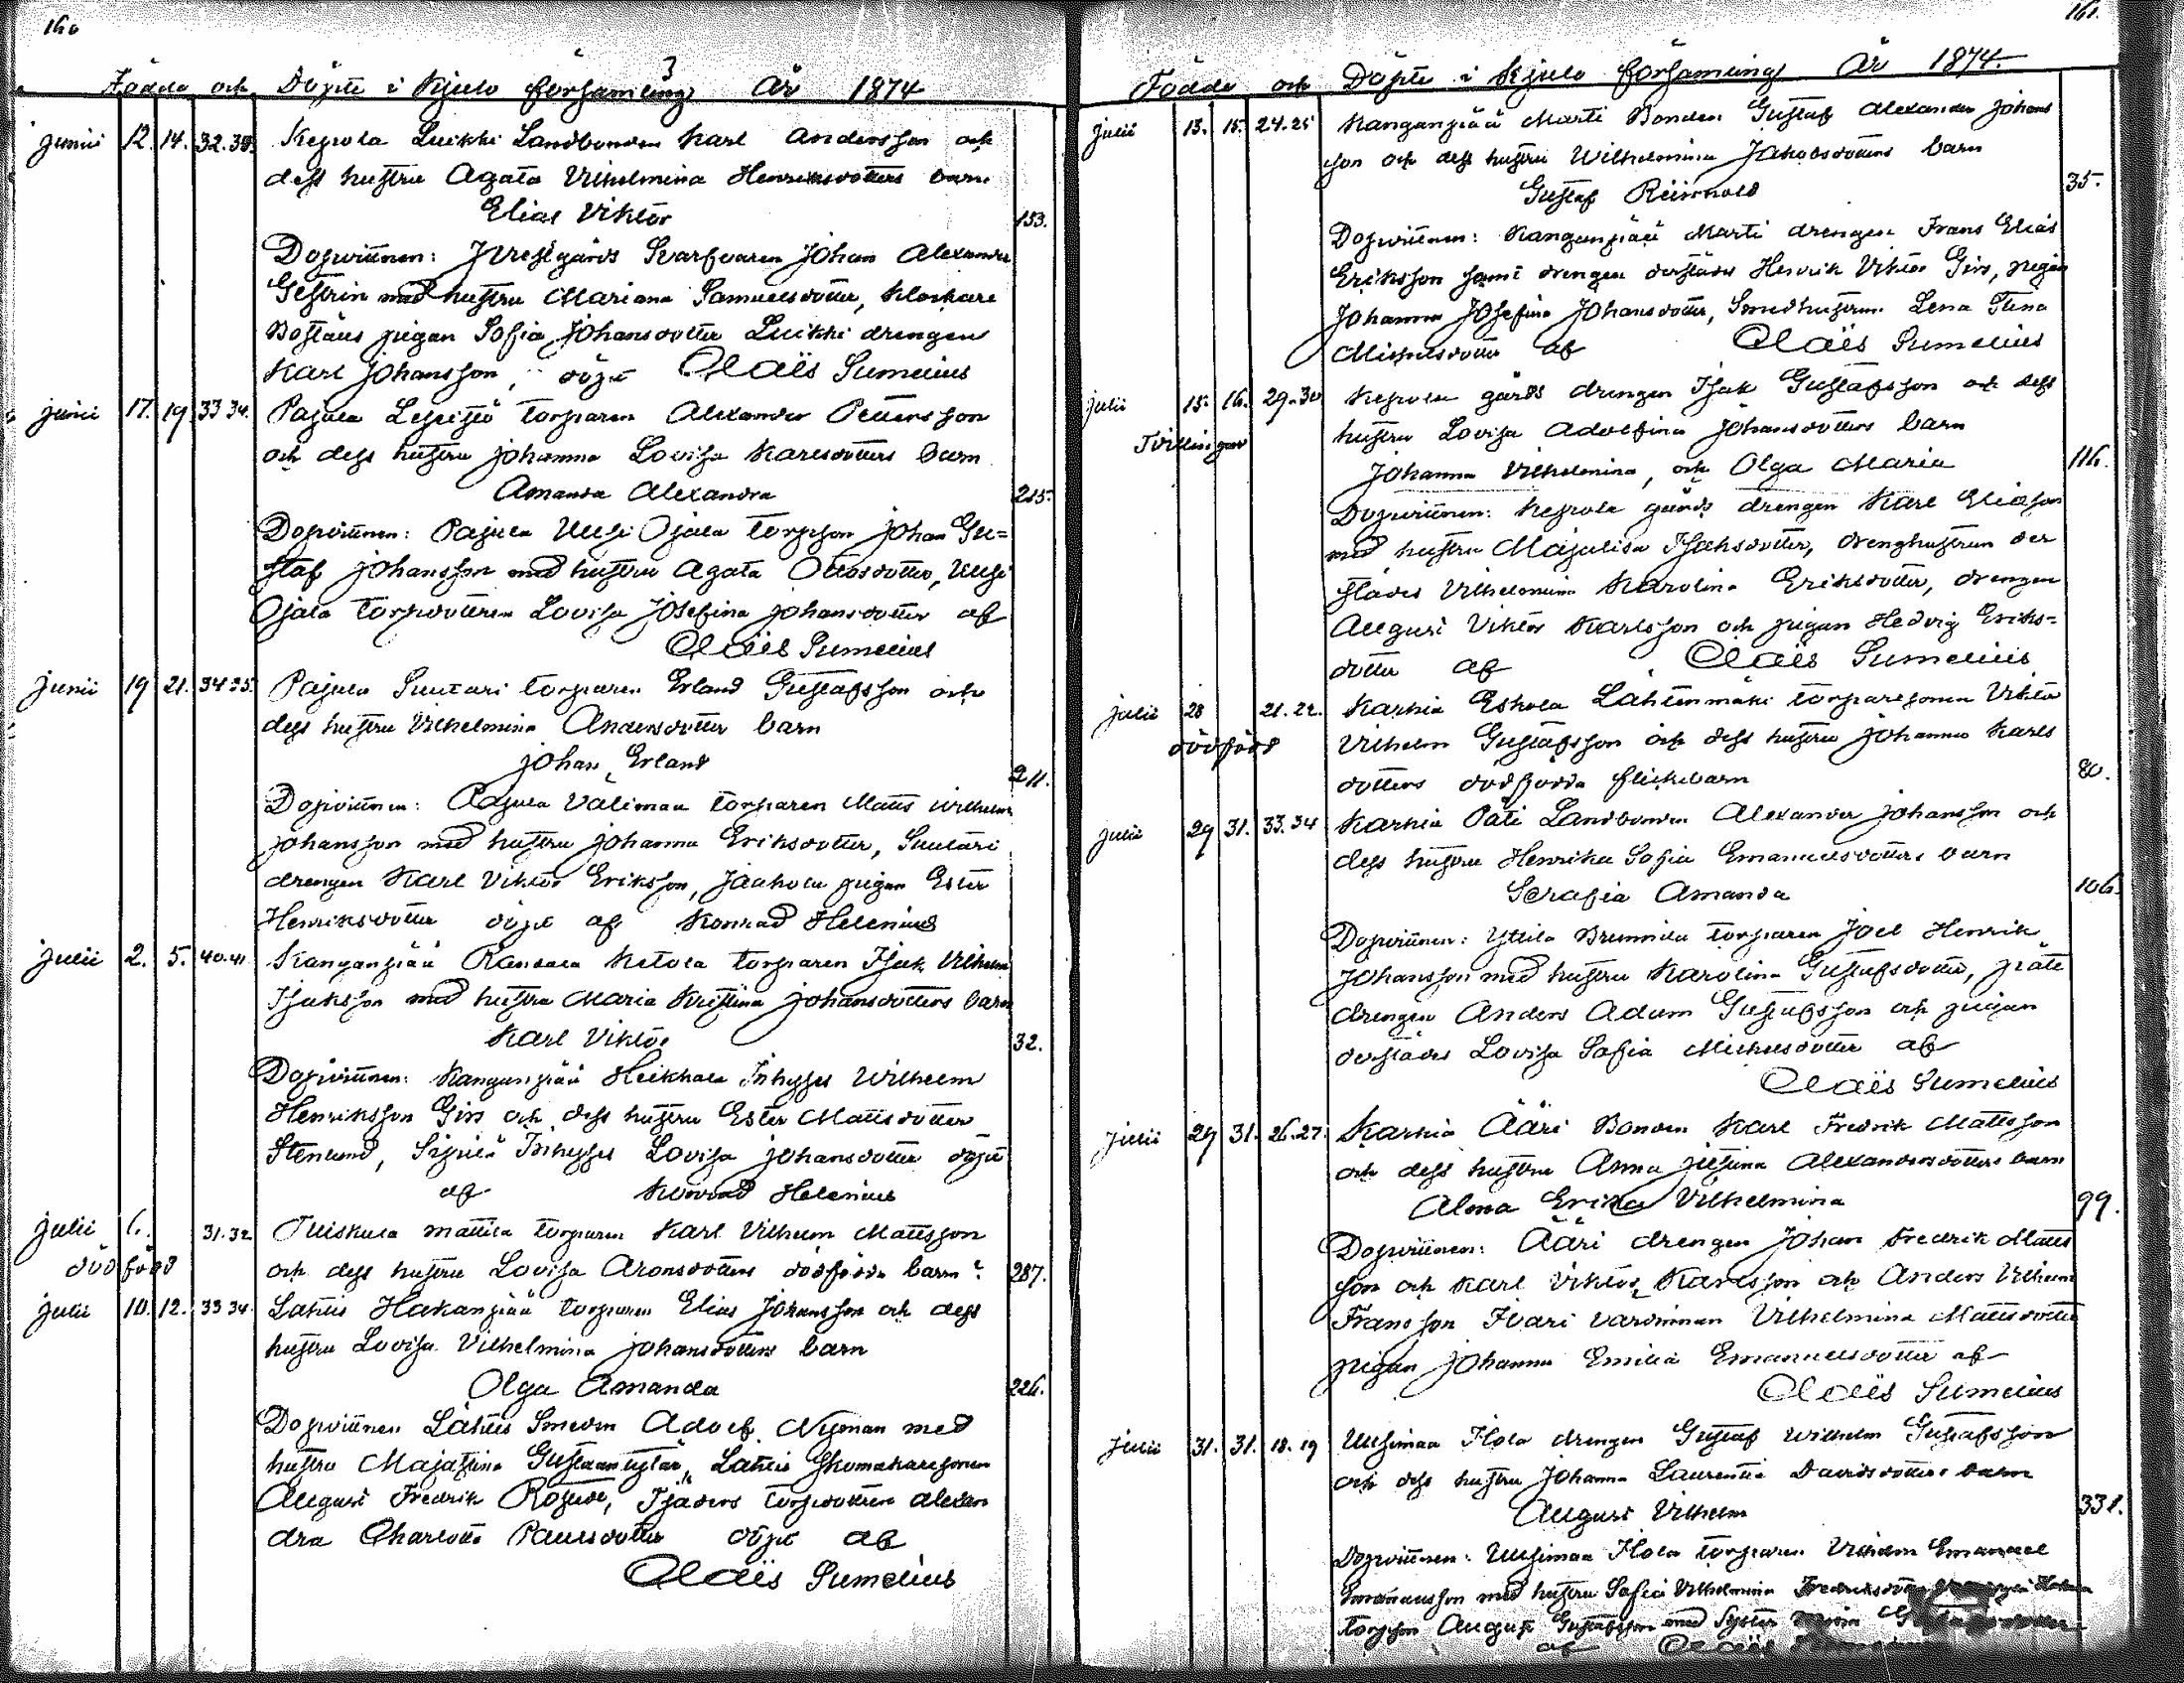 160
Födde och Döpte i Kjulo församling År 1874
junii 12. 14. 32.33. Kepola Luikki Landbonden Karl Andersson och
dess hustru Agata Vilhelmina Henriksdotters barn
Elias Viktor 153.
Dopvittnen: Jvresgårds Svarfvaren Johan Alexander
Gestrin med hustru Mariana Samuelsdotter, Klockare
Boställs pigan Sofia Johansdotter Luikki drengen
Karl Johansson, döpt Claës Sumelius
junii 17. 19. 33 34. Pajula Lepistö torparen Alexander Pettersson
och dess hustru Johanna Lovisa Karlsdotters barn
Amanda Alexandra 215.
Dopvittnen: Pajula Uusi Ojala torpson Johan Gu=
staf Johansson med hustru Agata Ottosdotter, Uusi
Ojala torpdottren Lovisa Josefina Johansdotter af
Claës Sumelius
Junii 19 21. 34 35. Pajula Suutari torparen Erland Gustafsson och
dess hustru Vilhelmina Andersdotter barn
Johan Erland 211.
Dopvittnen: Pajula Välimaa torparen Matts Wilhelm
Johansson med hustru Johanna Eriksdotter, Suutari
drengen Karl Viktor Eriksson, Jaakola pigan Ester
Henriksdotter döpt af Konrad Helenius
Julii 2. 5. 40.41 Kanganpää Ketola torparen Isak Vilhelm
Isaksson med hustru Maria Kristina Johansdotters barn
Karl Viktor 32.
Dopvittnen: Kanganpää Heikkala Inhyses Wilhelm
Henriksson Girs och dess hustru Ester Mattsdotter
Stenlund, Sipilä Inhyses Lovisa Johansdotter döpt
af Konrad Helenius
julii 6. 31.32 Tuiskula Mattila torparen Karl Vilhelm Mattsson
dödfödd och dess hustru Lovisa Aronsdotters dödfödda barn 287.
julii 10. 12. 33 34. Lähtis Hakanpää torparen Elias Johansson och dess
hustru Lovisa Vilhelmina Johansdotters barn
Olga Amanda 226.
Dopvittnen Lähtis Smeden Adolf Nyman med
hustru Majastina Gustaantytär, Lähtis Skomakaresonen
August Fredrik Rosqvist, torpdottren Alexan
dra Charlotta Paulsdotter döpt af
Claës Sumelius
161.
Födde och Döpte i Kjulo församling År 1874.
Julii 13. 15. 24.25 Kanganpää Martti Bonden Gustaf Alexander Johans
son och dess hustru Wilhelmina Jakobsdotters barn
Gustaf Reinhold 35.
Dopvittnen: Kanganpää Martti drengen Frans Elias
Eriksson samt drengen derstädes Henrik Viktor Girs, pigan
Johanna Josefina Johansdotter, Smedhustrun Lena Stina
Michelsdotter af Claës Sumelius
Julii 15. 16. 29.30 Kepola gårds drengen Isak Gustafsson och dess
Tvillingar hustru Lovisa Adolfina Johansdotters barn
Johanna Vilhelmina, och Olga Maria 116.
Dopvittnen: Kepola gårds drengen Karl Eliasson
med hustru Majalisa Isaksdotter, drenghustrun der
städes Vilhelmina Karolina Eriksdotter, drengen
August Viktor Karlsson och pigan Hedvig Eriks=
dotter af Claës Sumelius
julii 28 21.22. Karhia Eskola Lähtenmäki torparesonen Viktor
dödfödd Vilhelm Gustafsson och dess hustru Johanna Karls
dotters dödfödda flickebarn 80.
julii 29 31. 33.34 Karhia Päti Landbonden Alexander Johansson och
dess hustru Henrika Sofia Emanuelsdotters barn
Serafia Amanda 106.
Dopvittnen: Yttilä Brunnila torparen Joel Henrik
Johansson med hustru Karolina Gustafsdotter, Päti
drengen Anders Adam Gustafsson och pigan
derstädes Lovisa Sofia Michelsdotter af
Claës Sumelius
Julii 29 31. 26.27. Karhia Ääri Bonden Karl Fredrik Mattsson
och dess hustru Anna Justina Alexandersdotters barn
Alma Erika Vilhelmina 99.
Dopvittnen: Ääri drengen Johan Fredrik Matts
son och Karl Viktor Karlsson och Anders Vilhelm
Fransson Iivari värdinnan Vilhelmina Mattsdotter
pigan Johanna Emilia Emanuelsdotter af
Claës Sumelius
Julii 31. 31. 18.19 Uusimaa Ilola drengen Gustaf Wilhelm Gustafsson
och dess hustru Johanna Laurentia Davidsdotters barn
August Vilhelm 331.
Dopvittnen: Uusimaa Ilola torparen Vilhelm Emanuel
Emanuelsson med hustru Sofia Vilhelmina Fredriksdotter
torpson August Gustafsson med Syster
af Claës